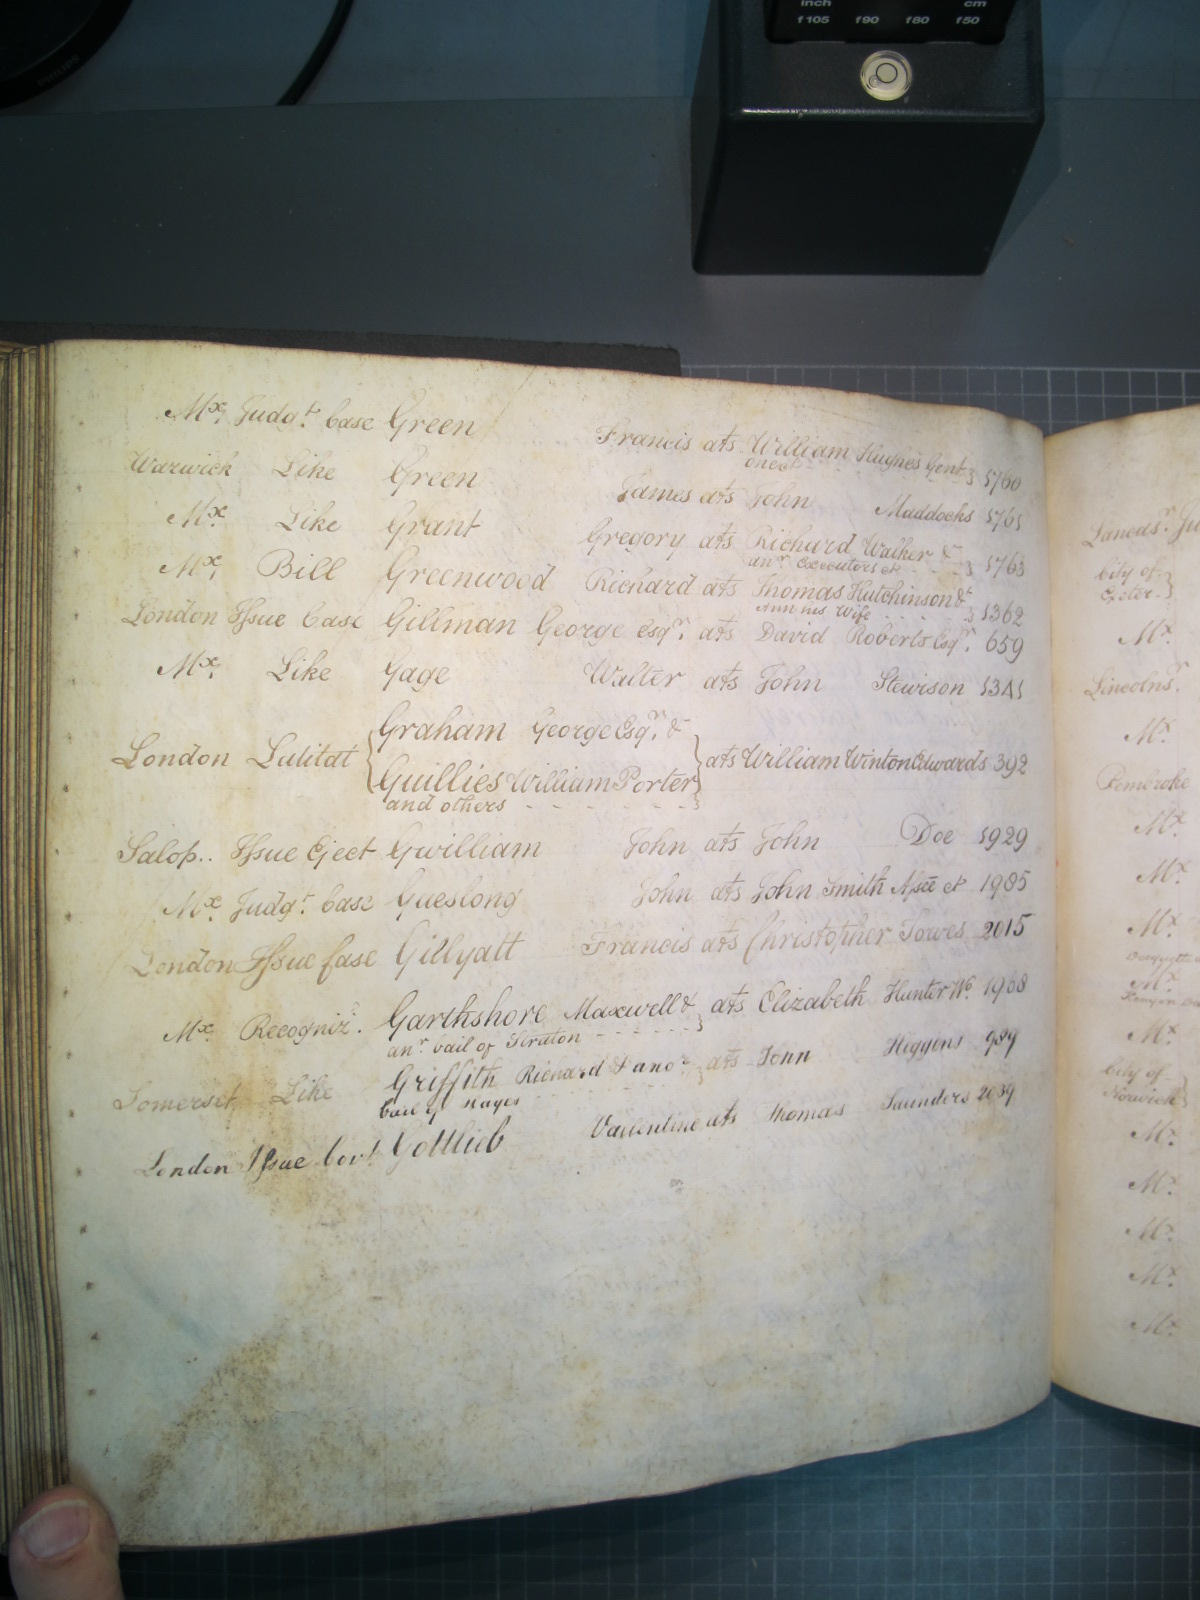 inch cm
f105 f90 f80 f50
Mx. Judgt. Case Green Francis ats William Hughes Gent
one &c 1760
Warwick Like Green James ats John Maddocks 1761
Mx. Like Grant Gregory ats Richard Walker &
anr. Executors &c 1763
Mx. Bill Greenwood Richard ats Thomas Hutchinson &
Ann his Wife 1362
London Issue Case Gillman George Esqr. ats David Roberts Esqr. 659
Mx. Like Gage Walter ats John Stewison 1341
Graham George Esqr. &
London Latitat Guillies William Porter ats William Winton Edwards 392
and others
Salop.. Issue Eject Gwilliam John ats John Doe 1929
Mx. Judgt. Case Gueslong John ats John Smith Assee &c 1985
London Issue Case Gillyatt Francis ats Christopher Towes 2015
Mx. Recogniz. Garthshore Maxwell & ats Elizabeth Hunter Wo. 1968
anr. bail of Straton
Somerset Like Griffith Richard & anor. ats John Higgins 989
bail of Hayes
London Issue Covt. Gottlieb Valentine ats Thomas Saunders 2039
Lancasr.
City of
Exeter
Mx.
Lincolnsr.
Mx.
Pembroke
Mx.
Mx.
Mx.
Mx.
Mx.
City of
Norwich
Mx.
Mx.
Mx.
Mx.
Mx.